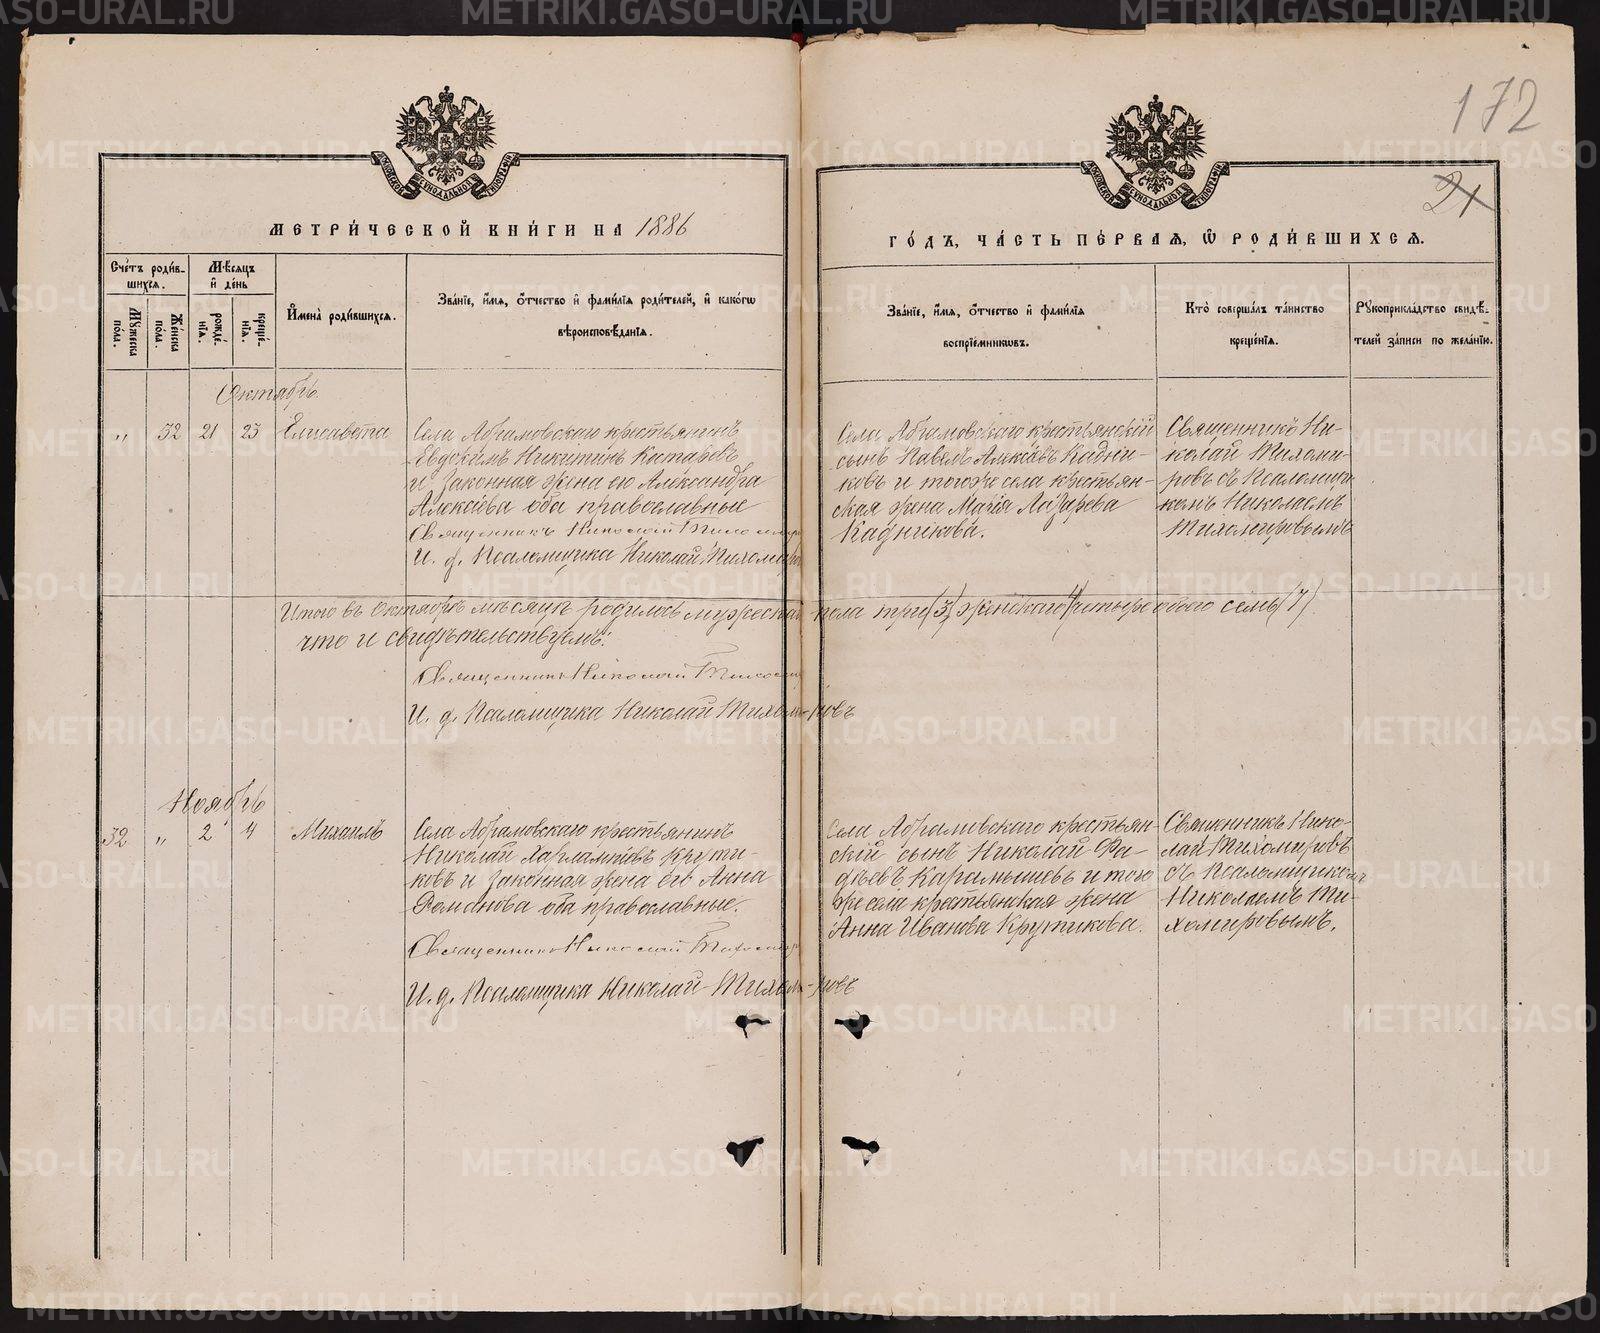 172
21
МОСКОВСКОЙ СѴНОДАЛЬНОЙ ТИПОГРАФІИ
МОСКОВСКОЙ СѴНОДАЛЬНОЙ ТИПОГРАФІИ
МЕТРИ́ЧЕСКОЙ КНИ́ГИ НА 1886
ГО́ДЪ, ЧА́СТЬ ПЕ́РВАЯ, Ѿ РОДИ́ВШИХСЯ.
Сче́тъ роди́в-
шихся.
Мꙋжеска пола.
Же́нска пола.
Мѣ́сяцъ
и҆ де́нь
рожде́-
нїя.
креще́-
нїя.
И҆мена̀ роди́вшихся.
Зва́нїе, и҆́мя, ѻ҆́тчество и҆ фами́лїя роди́телей, и҆ како́гѡ
вѣроисповѣ́данїя.
Зва́нїе, и҆́мя, ѻ҆́тчество и҆ фами́лїя
воспрїе́мникѡвъ.
Кто̀ соверша́лъ та́инство
креще́нїя.
Рꙋкоприкла́дство свидѣ́-
телей за́писи по жела́нїю.
Октябрь
„ 32 21 23 Елисавета
Села Абрамовскаго крестьянинъ
Евдокимъ Никитинъ Катаревъ
и законная жена его Александра
Алексѣева оба православные
Священникъ Николай Тихомиров
И. д. Псаломщика Николай Тихомиров
Села Абрамовскаго крестьянскій
сынъ Павелъ Алексѣевъ Кадни-
ковъ и тогоже села крестьян-
ская жена Марія Лазарева
Кадникова.
Священникъ Ни-
колай Тихоми-
ровъ съ Псаломщи-
комъ Николаемъ
Тихомировымъ
Итого въ Октябрѣ мѣсяцѣ родилось мужескаго пола три (3), женскаго (4) четыре обоего семь (7)
что и свидѣтельствуемъ:
Священникъ Николай Тихомиров
И. д. Псаломщика Николай Тихоми-ровъ
Ноябрь
32 „ 2 4 Михаилъ
Села Абрамовскаго крестьянинъ
Николай Харлампіевъ Крути-
ковъ и законная жена его Анна
Романова оба православные.
Священникъ Николай Тихомиров
И. д. Псаломщика Николай Тихоми-ровъ
Села Абрамовскаго крестьян-
скій сынъ Николай Фа-
дѣевъ Карамышевъ и того
же села крестьянская жена
Анна Иванова Крутикова.
Священникъ Нико-
лай Тихомировъ
съ Псаломщикомъ
Николаемъ Ти-
хомировымъ.
METRIKI.GASO-URAL.RU